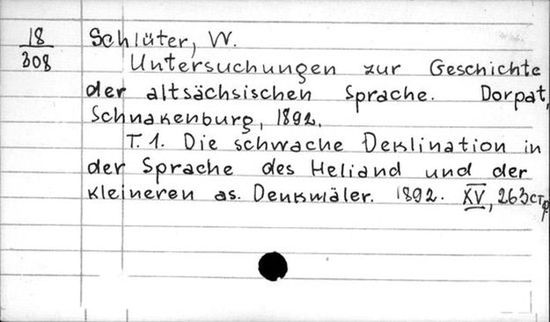 18
308
Schlüter, W.
Untersuchungen zur Geschichte
der altsächsischen Sprache. Dorpat,
Schnakenburg, 1892.
T. 1. Die schwache Deklination in
der Sprache des Heliand und der
kleineren as. Denkmäler. 1892. XV, 263 стр